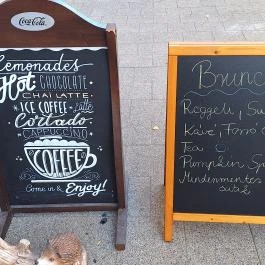 Coca-Cola
Lemonades
Hot CHOCOLATE
CHAI LATTE
ICE COFFEE latte
Cortado
CAPPUCCINO
COFFEE
Come in & Enjoy!
Brunc
Reggeli, Sü
Kávé,
Tea
Pumpkin Sp
Mindenmentes
sütik